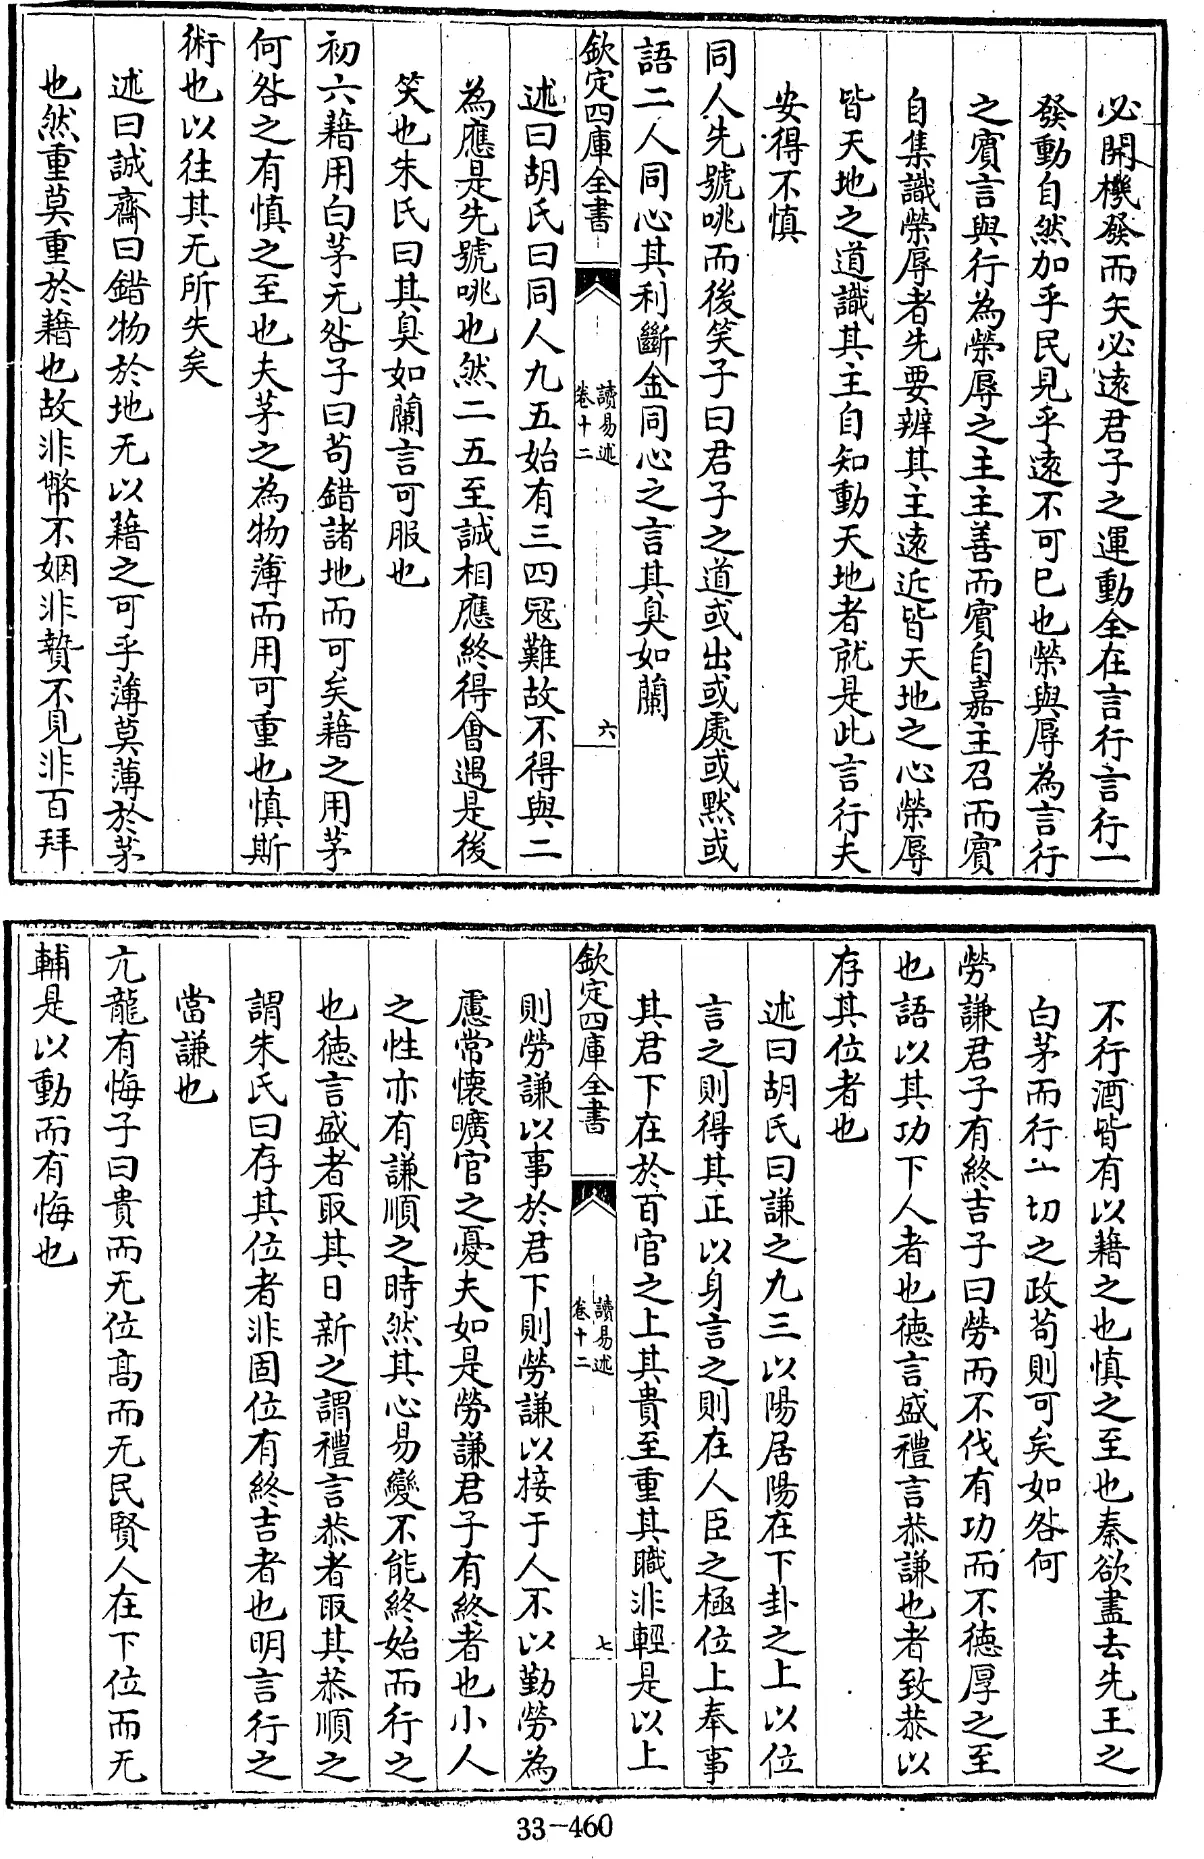 必開機發而矢必遠君子之運動全在言行言行一
發動自然加乎民見乎遠不可已也榮與辱為言行
之賓言與行為榮辱之主主善而賓自嘉主召而賓
自集識榮辱者先要辨其主遠近皆天地之心榮辱
皆天地之道識其主自知動天地者就是此言行夫
安得不慎
同人先號咷而後笑子曰君子之道或出或處或默或
語二人同心其利斷金同心之言其臭如蘭
欽定四庫全書
讀易述
卷十二
六
述曰胡氏曰同人九五始有三四冦難故不得與二
為應是先號咷也然二五至誠相應終得會遇是後
笑也朱氏曰其臭如蘭言可服也
初六藉用白茅无咎子曰苟錯諸地而可矣藉之用茅
何咎之有慎之至也夫茅之為物薄而用可重也慎斯
術也以往其无所失矣
述曰誠齋曰錯物於地无以藉之可乎薄莫薄於茅
也然重莫重於藉也故非幣不姻非贄不見非百拜
不行酒皆有以藉之也慎之至也秦欲盡去先王之
白茅而行一切之政苟則可矣如咎何
勞謙君子有終吉子曰勞而不伐有功而不德厚之至
也語以其功下人者也德言盛禮言恭謙也者致恭以
存其位者也
述曰胡氏曰謙之九三以陽居陽在下卦之上以位
言之則得其正以身言之則在人臣之極位上奉事
其君下在於百官之上其貴至重其職非輕是以上
欽定四庫全書
讀易述
卷十二
七
則勞謙以事於君下則勞謙以接于人不以勤勞為
慮常懐曠官之憂夫如是勞謙君子有終者也小人
之性亦有謙順之時然其心易變不能終始而行之
也徳言盛者取其日新之謂禮言恭者取其恭順之
謂朱氏曰存其位者非固位有終吉者也明言行之
當謙也
亢龍有悔子曰貴而无位髙而无民賢人在下位而无
輔是以動而有悔也
33-460